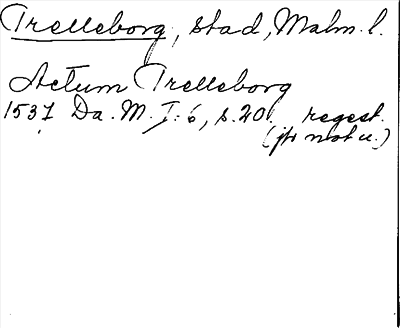 Trelleborg, stad, Malm. l.
Actum Trelleborg
1537 Da. M. I: 6, s. 20. regest.
(jfr not u.)